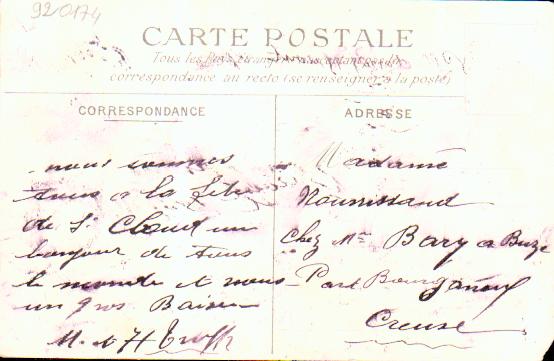 920174
CARTE POSTALE
Tous les Pays étrangers n'acceptent pas de
correspondance au recto (se renseigner à la poste)
CORRESPONDANCE
ADRESSE
nous sommes
tous a la fête
de St Cloud un
bonjour de tous
le monde et nous
un gros Baiser
M. et H
Madame
Nourissand
Chez Mr Bary a Buze
Par Bourganeuf
Creuse